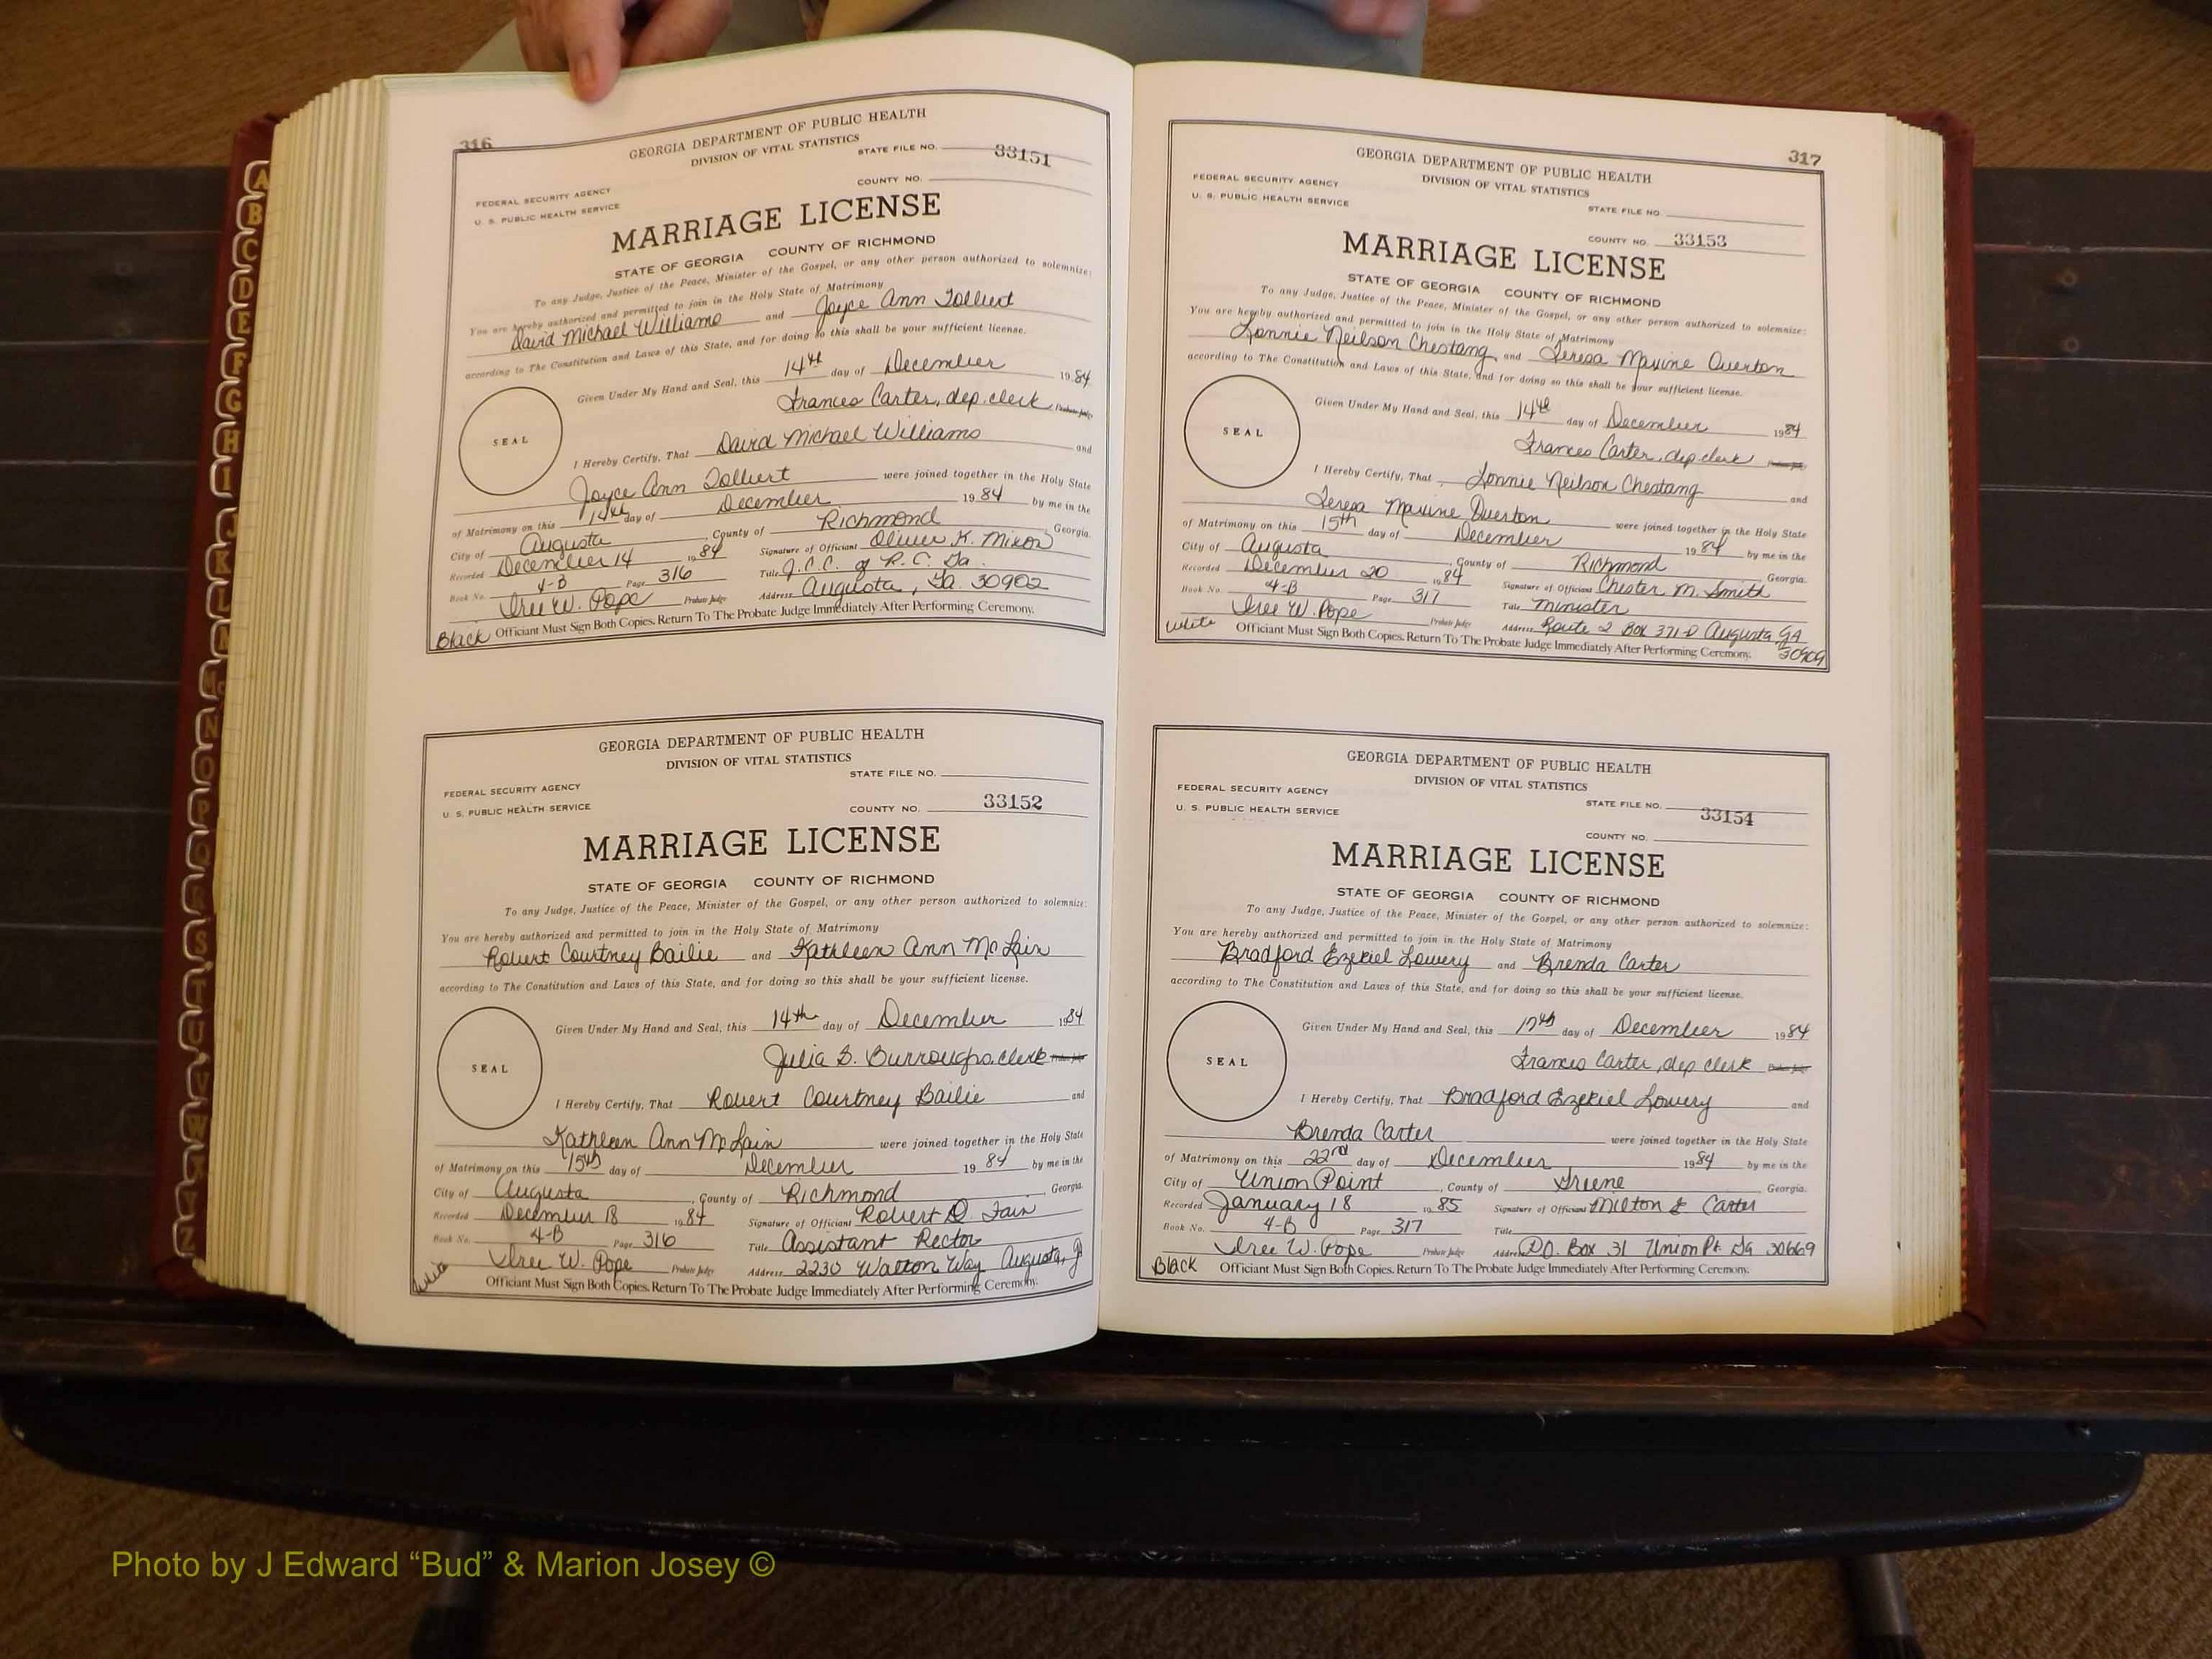 316
GEORGIA DEPARTMENT OF PUBLIC HEALTH
DIVISION OF VITAL STATISTICS
STATE FILE NO. 33151
COUNTY NO.
FEDERAL SECURITY AGENCY
U. S. PUBLIC HEALTH SERVICE
MARRIAGE LICENSE
STATE OF GEORGIA COUNTY OF RICHMOND
To any Judge, Justice of the Peace, Minister of the Gospel, or any other person authorized to solemnize:
You are hereby authorized and permitted to join in the Holy State of Matrimony
David Michael Williams and Joyce Ann Tolbert
according to The Constitution and Laws of this State, and for doing so this shall be your sufficient license.
Given Under My Hand and Seal, this 14th day of December 1984
Frances Carter, dep. clerk Probate Judge
SEAL
I Hereby Certify, That David Michael Williams and
Joyce Ann Tolbert were joined together in the Holy State
of Matrimony on this 14th day of December 1984 by me in the
City of Augusta, County of Richmond, Georgia.
Recorded December 14 1984 Signature of Official Oliver K. Mixon
Book No. 4-B Page 316 Title J.C.C. of R.C. Ga.
W. Pope Probate Judge Address Augusta, Ga. 30902
Black Officiant Must Sign Both Copies. Return To The Probate Judge Immediately After Performing Ceremony.
GEORGIA DEPARTMENT OF PUBLIC HEALTH
DIVISION OF VITAL STATISTICS
STATE FILE NO.
FEDERAL SECURITY AGENCY
U. S. PUBLIC HEALTH SERVICE
COUNTY NO. 33152
MARRIAGE LICENSE
STATE OF GEORGIA COUNTY OF RICHMOND
To any Judge, Justice of the Peace, Minister of the Gospel, or any other person authorized to solemnize:
You are hereby authorized and permitted to join in the Holy State of Matrimony
Robert Courtney Bailie and Kathleen Ann McLain
according to The Constitution and Laws of this State, and for doing so this shall be your sufficient license.
Given Under My Hand and Seal, this 14th day of December 1984
Julia B. Burroughs, clerk Probate Judge
SEAL
I Hereby Certify, That Robert Courtney Bailie and
Kathleen Ann McLain were joined together in the Holy State
of Matrimony on this 15th day of December 1984 by me in the
City of Augusta, County of Richmond, Georgia.
Recorded December 18 1984 Signature of Official Robert D. Fain
Book No. 4-B Page 316 Title Assistant Rector
W. Pope Probate Judge Address 2230 Walton Way Augusta, G
Officiant Must Sign Both Copies. Return To The Probate Judge Immediately After Performing Ceremony.
317
GEORGIA DEPARTMENT OF PUBLIC HEALTH
DIVISION OF VITAL STATISTICS
FEDERAL SECURITY AGENCY
U. S. PUBLIC HEALTH SERVICE
STATE FILE NO.
COUNTY NO. 33153
MARRIAGE LICENSE
STATE OF GEORGIA COUNTY OF RICHMOND
To any Judge, Justice of the Peace, Minister of the Gospel, or any other person authorized to solemnize:
You are hereby authorized and permitted to join in the Holy State of Matrimony
Lonnie Neilson Chestang and Teresa Maxine Overton
according to The Constitution and Laws of this State, and for doing so this shall be your sufficient license.
Given Under My Hand and Seal, this 14th day of December 1984
Frances Carter, dep. clerk Probate Judge
SEAL
I Hereby Certify, That Lonnie Neilson Chestang and
Teresa Maxine Overton were joined together in the Holy State
of Matrimony on this 15th day of December 1984 by me in the
City of Augusta, County of Richmond Georgia.
Recorded December 20 1984 Signature of Official Chester M. Smith
Book No. 4-B Page 317 Title minister
W. Pope Probate Judge Address Route 2 Box 371-D Augusta, GA 30909
White Officiant Must Sign Both Copies. Return To The Probate Judge Immediately After Performing Ceremony.
GEORGIA DEPARTMENT OF PUBLIC HEALTH
DIVISION OF VITAL STATISTICS
FEDERAL SECURITY AGENCY
U. S. PUBLIC HEALTH SERVICE
STATE FILE NO. 33154
COUNTY NO.
MARRIAGE LICENSE
STATE OF GEORGIA COUNTY OF RICHMOND
To any Judge, Justice of the Peace, Minister of the Gospel, or any other person authorized to solemnize:
You are hereby authorized and permitted to join in the Holy State of Matrimony
Bradford Ezekiel Lowery and Brenda Carter
according to The Constitution and Laws of this State, and for doing so this shall be your sufficient license.
Given Under My Hand and Seal, this 17th day of December 1984
Frances Carter, dep clerk Probate Judge
SEAL
I Hereby Certify, That Bradford Ezekiel Lowery and
Brenda Carter were joined together in the Holy State
of Matrimony on this 22nd day of December 1984 by me in the
City of Union Point, County of Greene Georgia.
Recorded January 18 1985 Signature of Official Milton E Carter
Book No. 4-B Page 317 Title
W. Pope Probate Judge Address P.O. Box 31 Union Pt. Ga 30669
Black Officiant Must Sign Both Copies. Return To The Probate Judge Immediately After Performing Ceremony.
Photo by J Edward “Bud” & Marion Josey ©